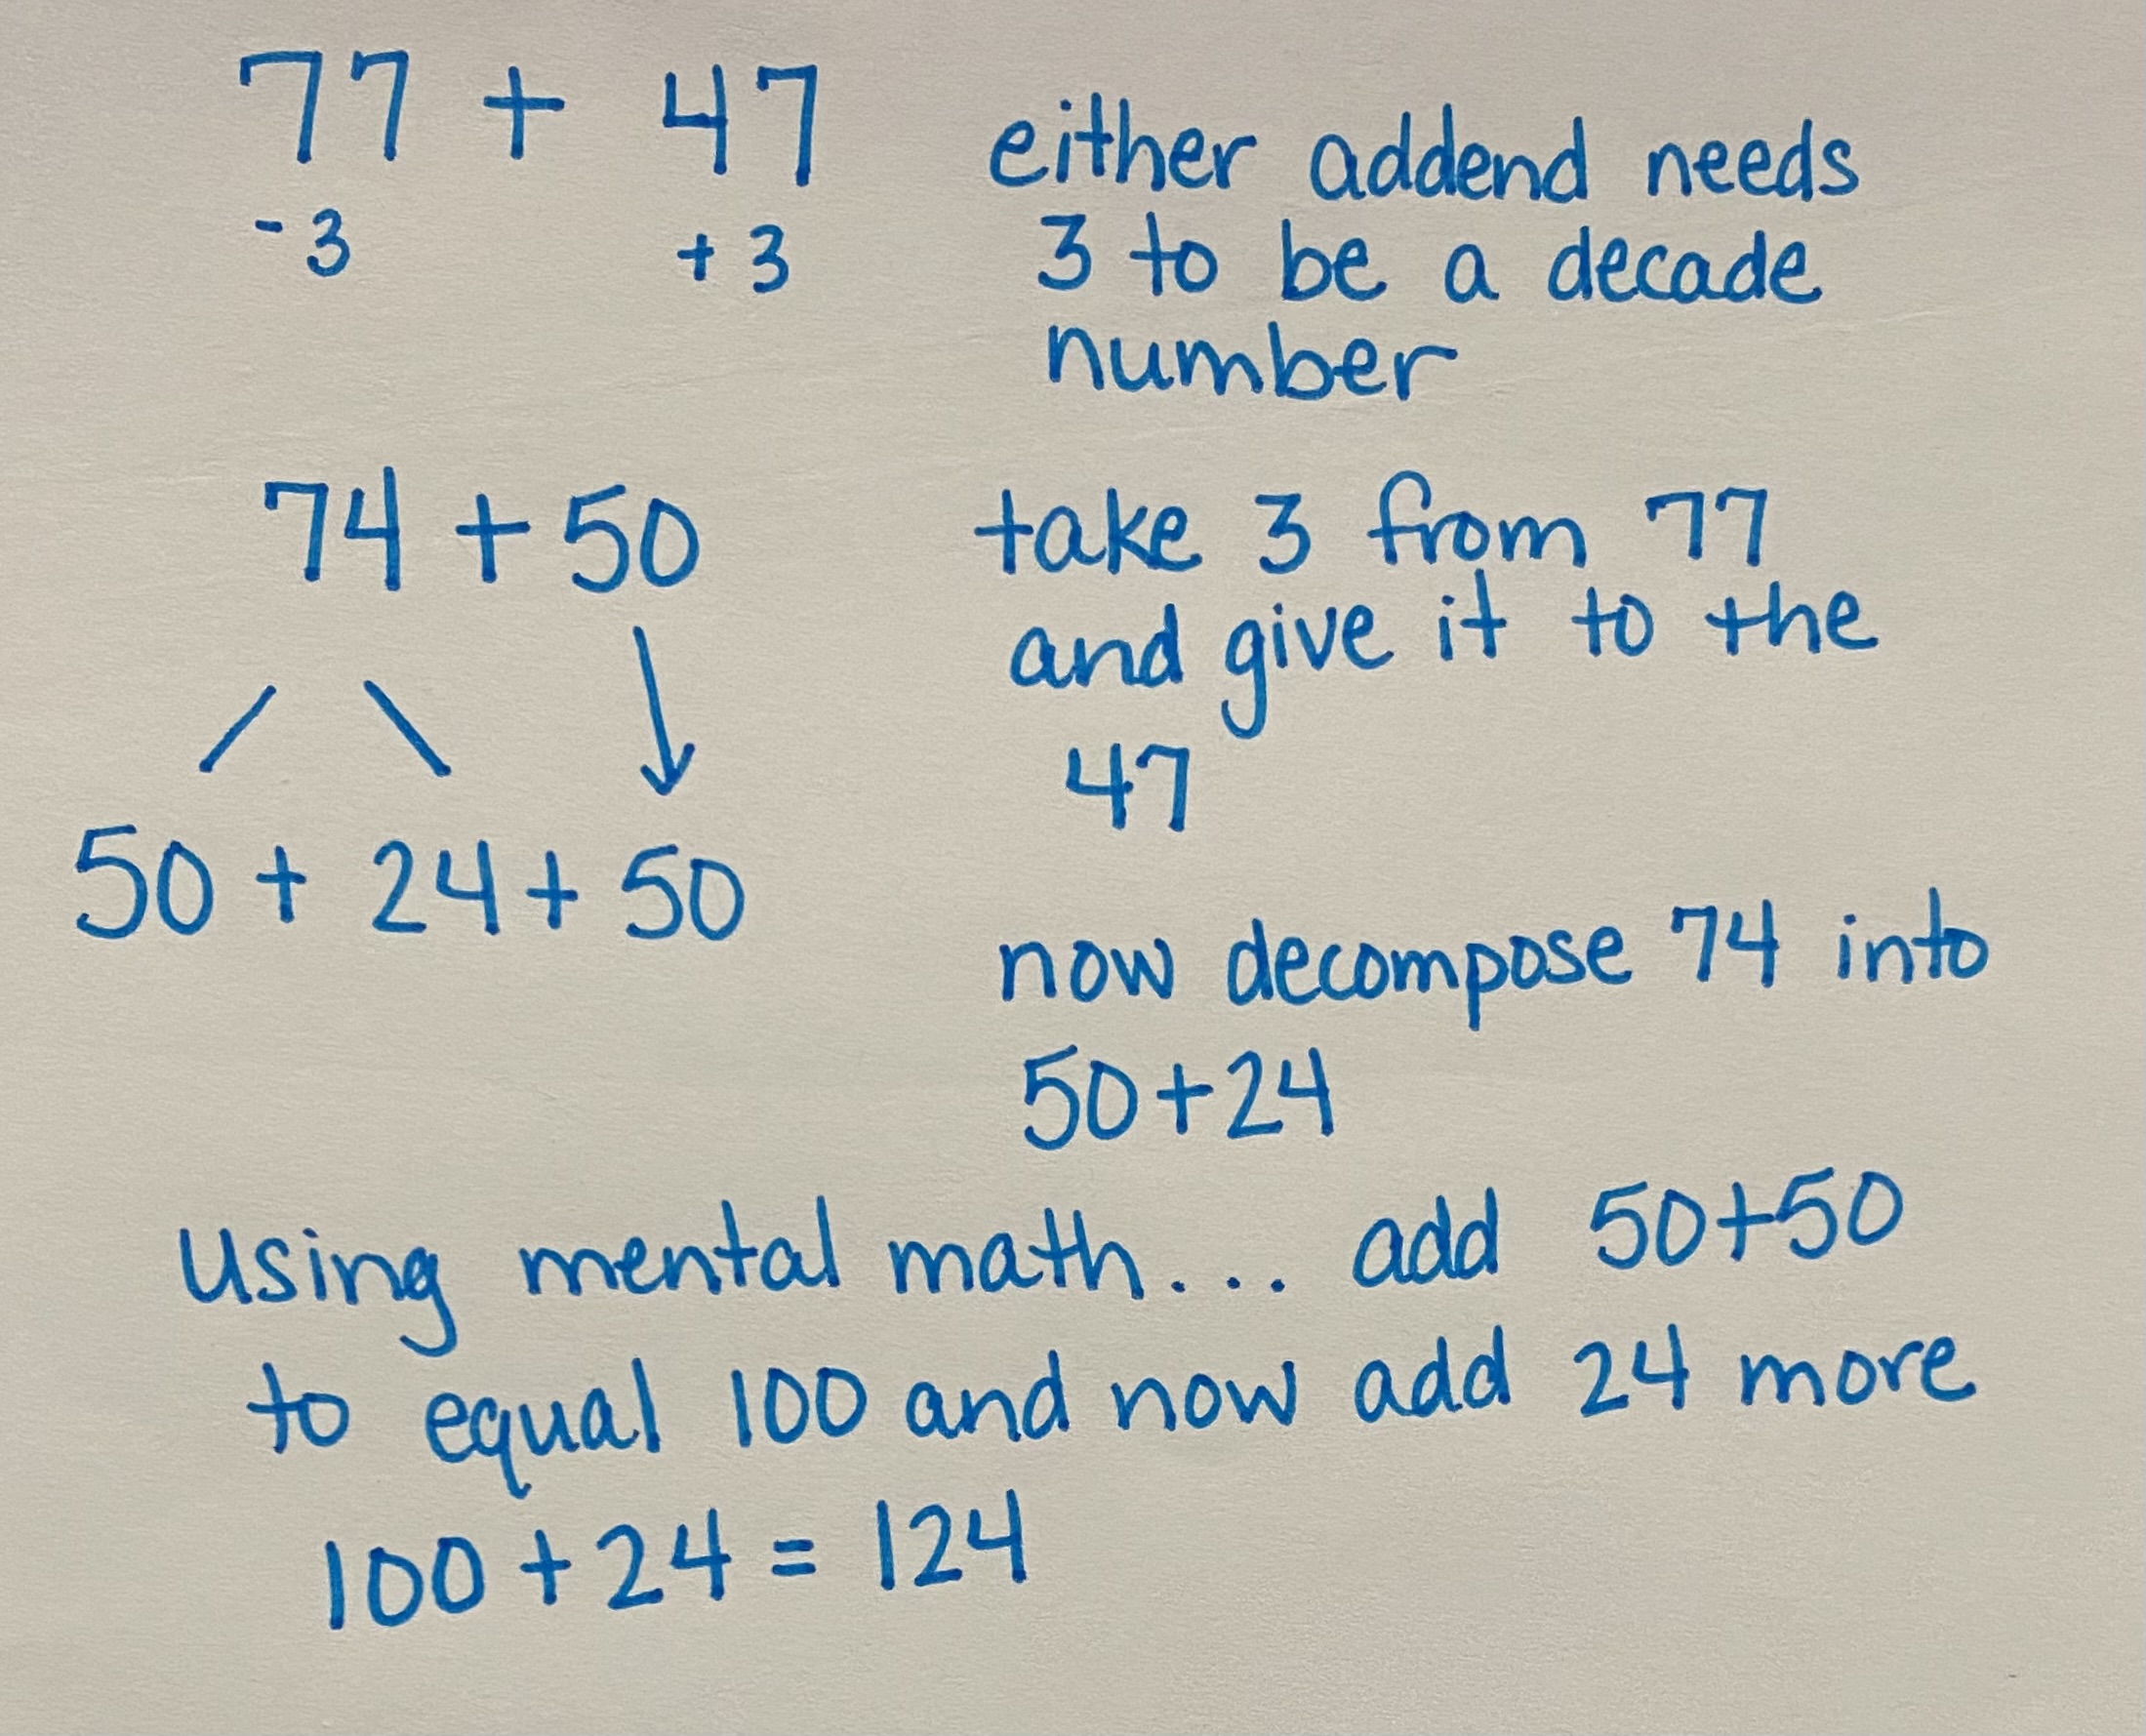 77 + 47
-3 +3
either addend needs
3 to be a decade
number
74 + 50
take 3 from 77
and give it to the
47
50 + 24 + 50
now decompose 74 into
50+24
using mental math... add 50+50
to equal 100 and now add 24 more
100 + 24 = 124